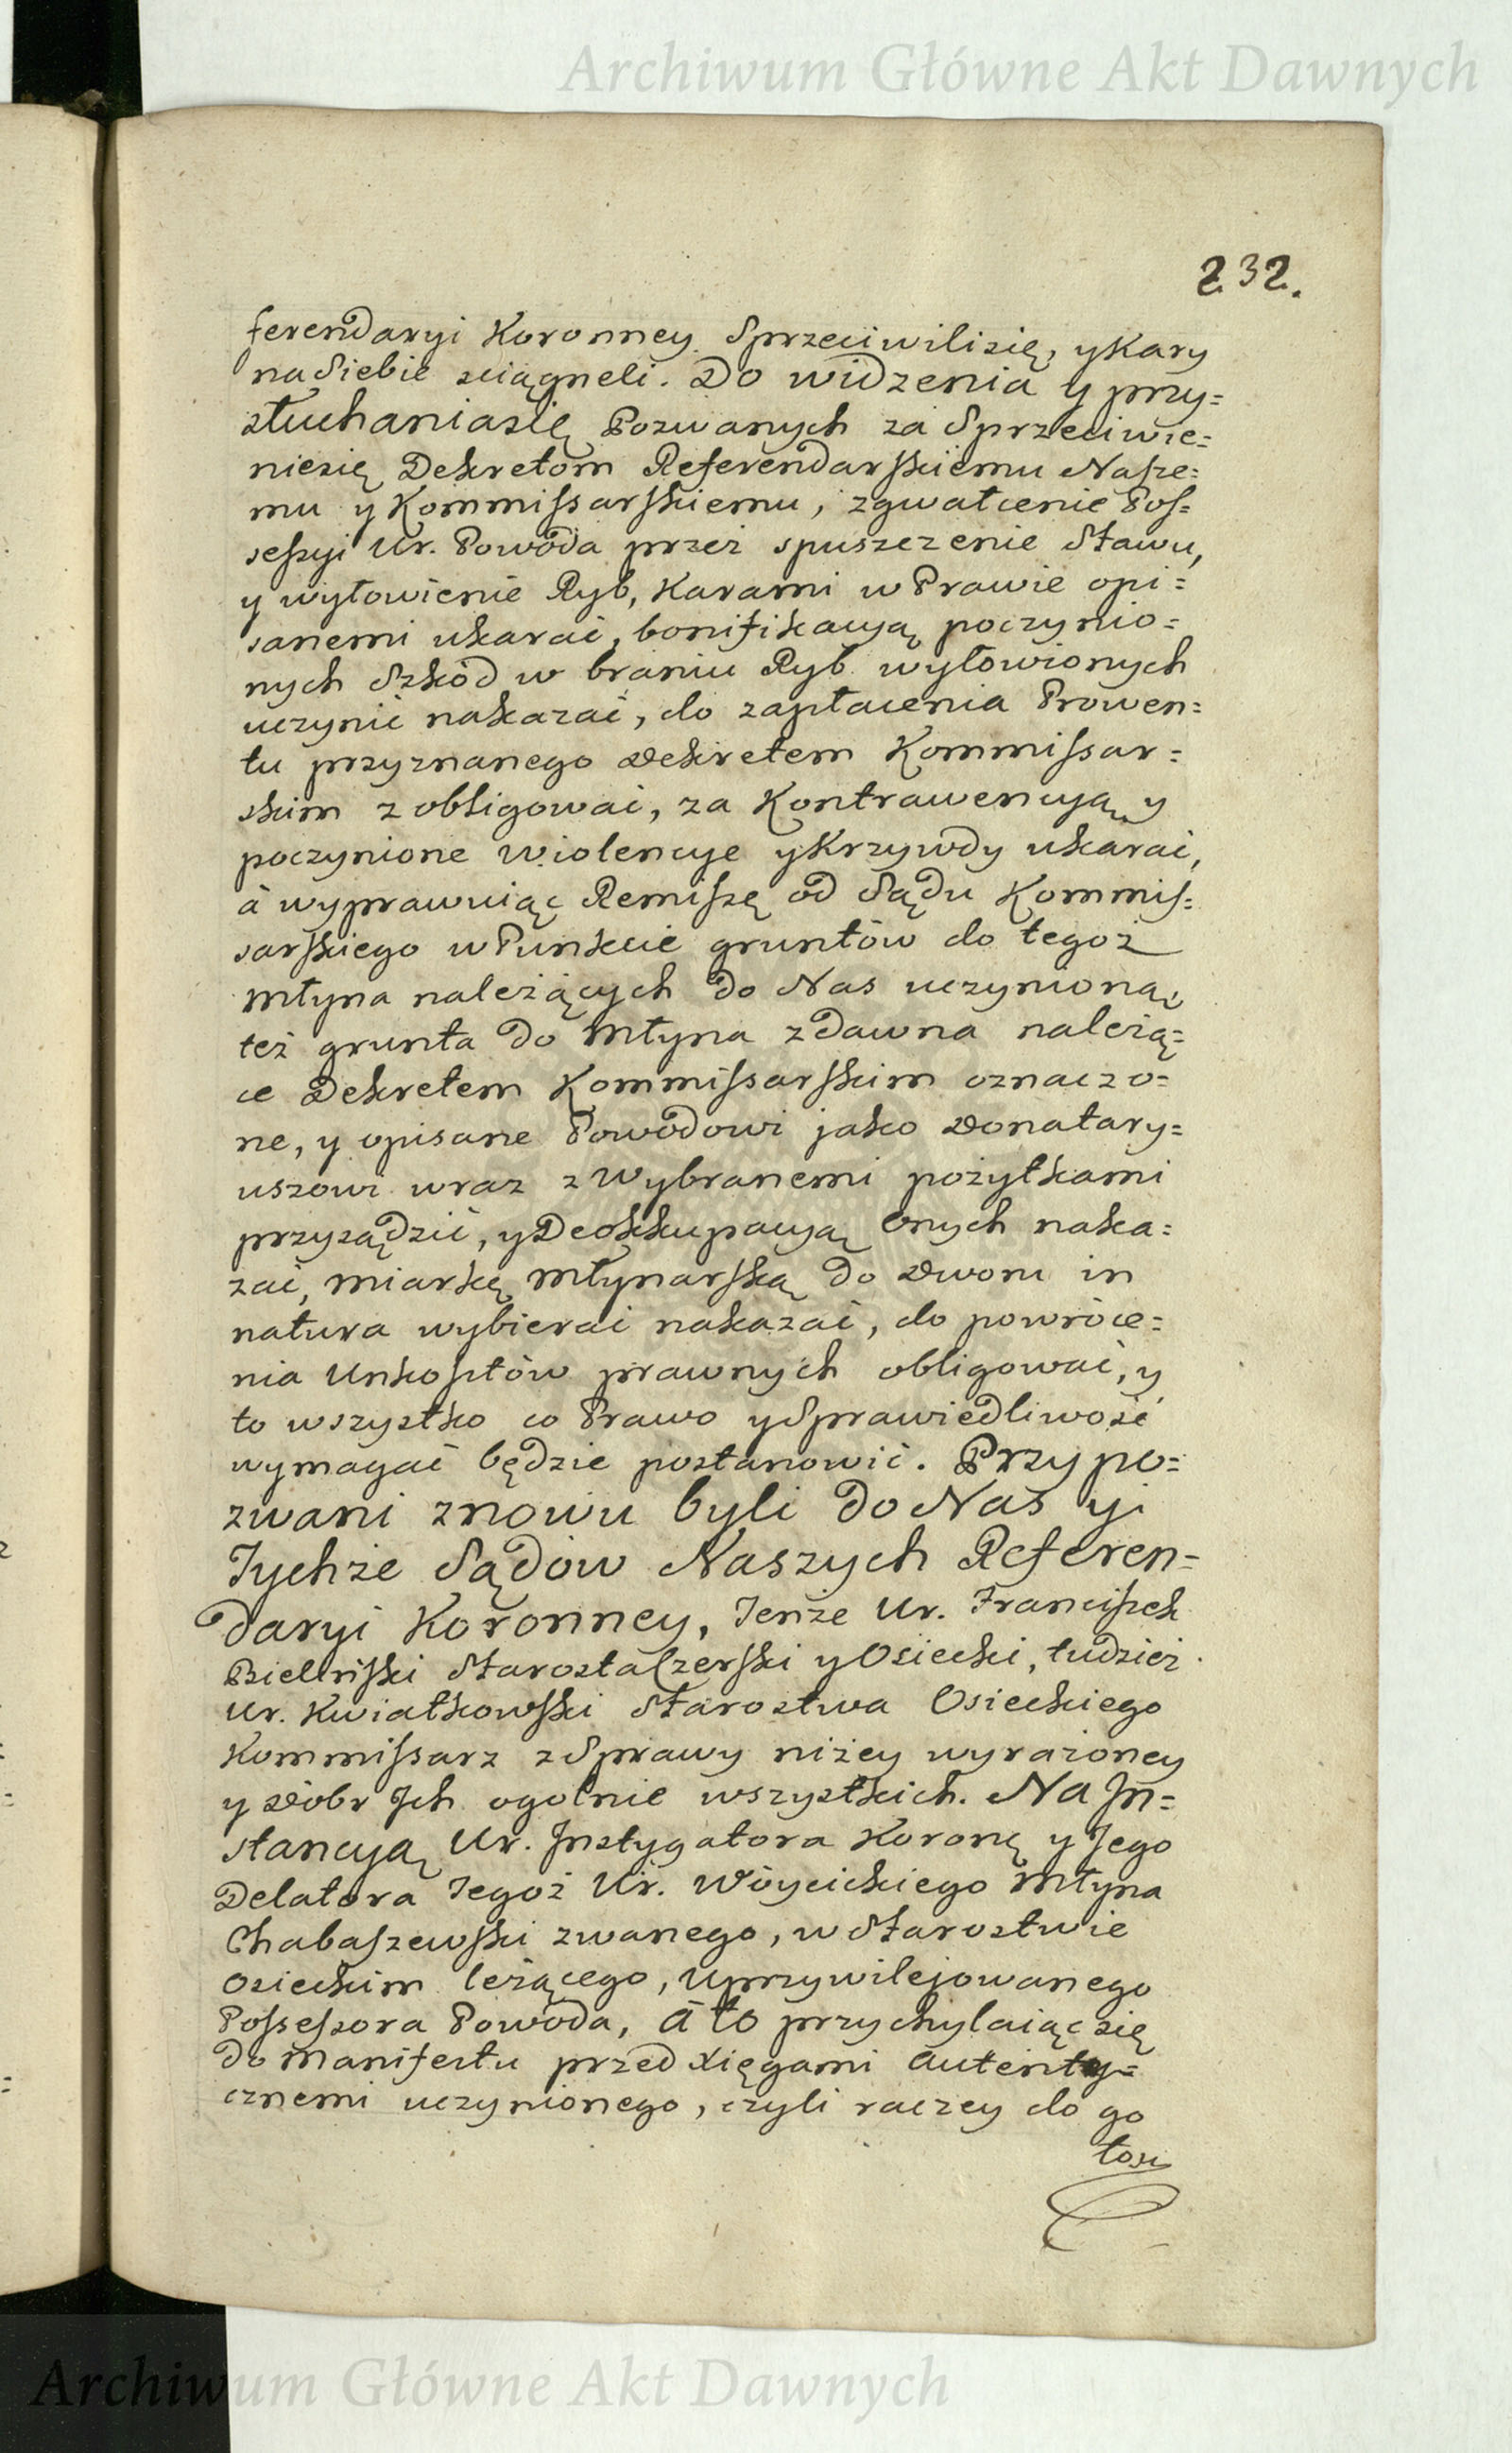 Archiwum Główne Akt Dawnych
232.
ferendaryi Koronney Sprzeciwilisię, y Kary
na Siebie sciągneli. Do widzenia y przy=
słuchaniasię Pozwanych za Sprzeciwie=
niesię Dekretom Referendarskiemu Nasze=
mu y Kommissarskiemu, zgwałcenie Pos=
sessyi Ur. Powoda przez spuszczenie Stawu,
y wyłowienie Ryb, Karami w Prawie opi=
sanemi ukarać, bonifikacyą poczynio=
nych Szkód w braniu Ryb wyłowionych
uczynić nakazać, do zapłacenia Prowen=
tu przyznanego Dekretem Kommissar=
skim zobligować, za Kontrawencyą y
poczynione Wiolencye y Krzywdy ukarać,
à wyprawuiąc Remissę od Sądu Kommis=
sarskiego w Punkcie gruntów do tegoż
Młyna należących do Nas uczynioną,
też grunta do Młyna zdawna należą=
ce Dekretem Kommissarskim oznaczo=
ne, y opisane Powodowi jako Donatary=
uszowi wraz z Wybranemi pożytkami
przysądzić, y Deokkupacyą onych naka=
zać, miarkę Młynarską do Dworu in
natura wybierać nakazać, do powróce=
nia Unkosztów prawnych obligować, y
to wszystko co Prawo y Sprawiedliwość
wymagać będzie postanowić. Przypo=
zwani znowu byli do Nas y
Tychże Sądów Naszych Referen=
daryi Koronney, Tenże Ur. Franciszek
Bieliński Starosta Czerski y Osiecki, tudzież
Ur. Kwiatkowski Starostwa Osieckiego
Kommissarz z Sprawy niżey wyrażoney
y Dóbr Ich ogolnie wszystkich. Na In=
stancyą Ur. Instygatora Koronę y Jego
Delatora Tegoż Ur. Wóycickiego Młyna
Chabaszewski zwanego, w Starostwie
Osieckim leżącego, Uprzywilejowanego
Possessora Powoda, à to przychylaiąc się
do Manifestu przed Xięgami Autenty=
cznemi uczynionego, czyli raczey do go
tosi
Archiwum Główne Akt Dawnych